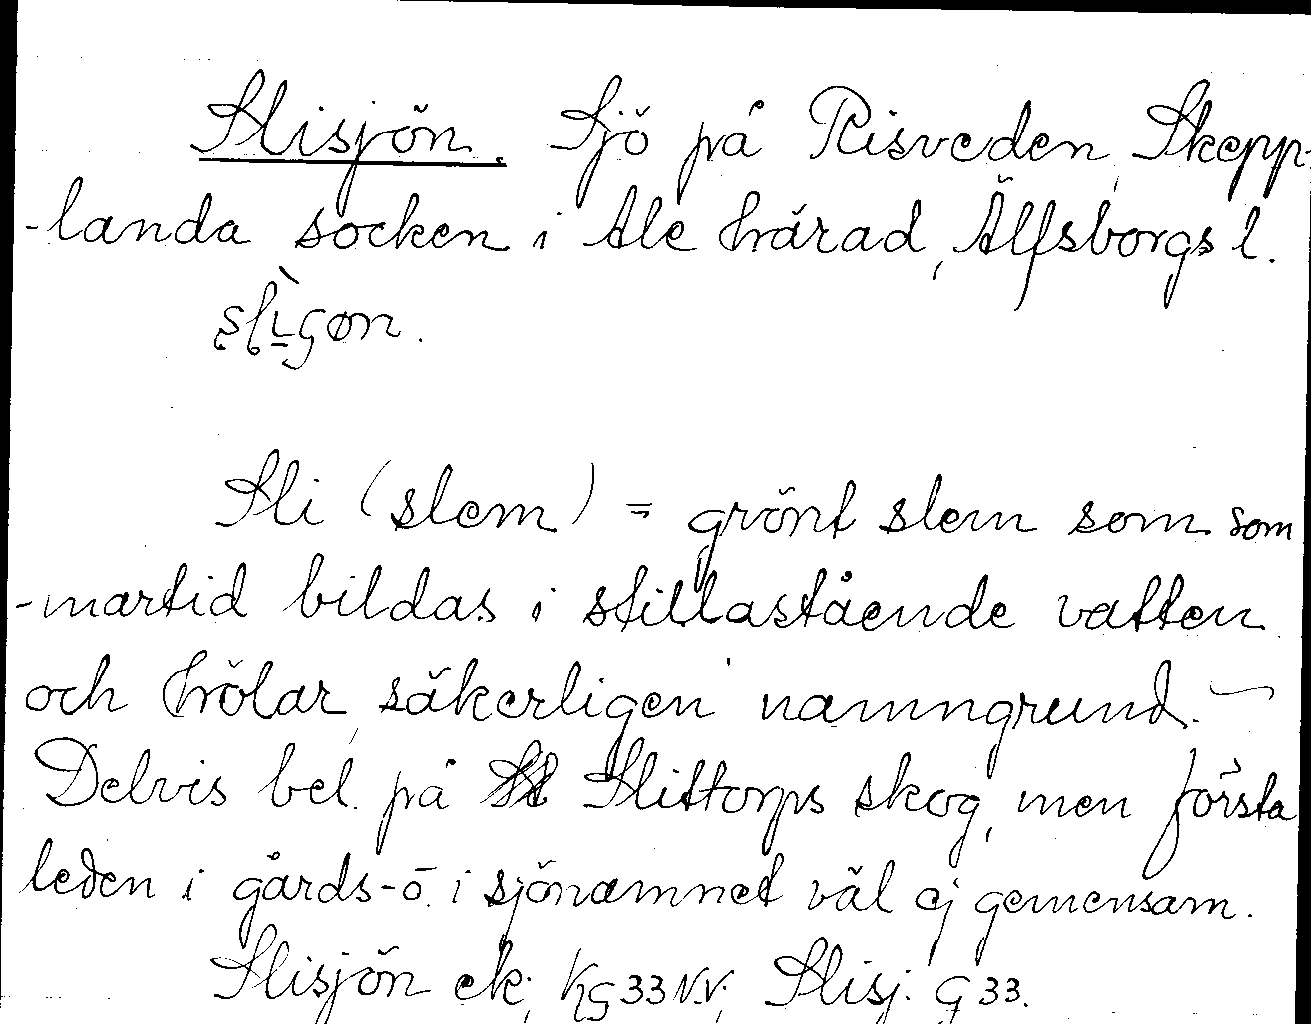 Slisjön. Sjö på Risveden, Skepp-
-landa socken i Ale härad, Älfsborgs l.
Sli (slem) = grönt slem som som
-martid bildas i stillastående vatten
och hölar, säkerligen namngrund. —
Delvis bel. på Slittorps skog, men första
leden i gårds- o. i sjönamnet väl ej gemensam.
Slisjön ek; KG33NV; Slisj. G33.